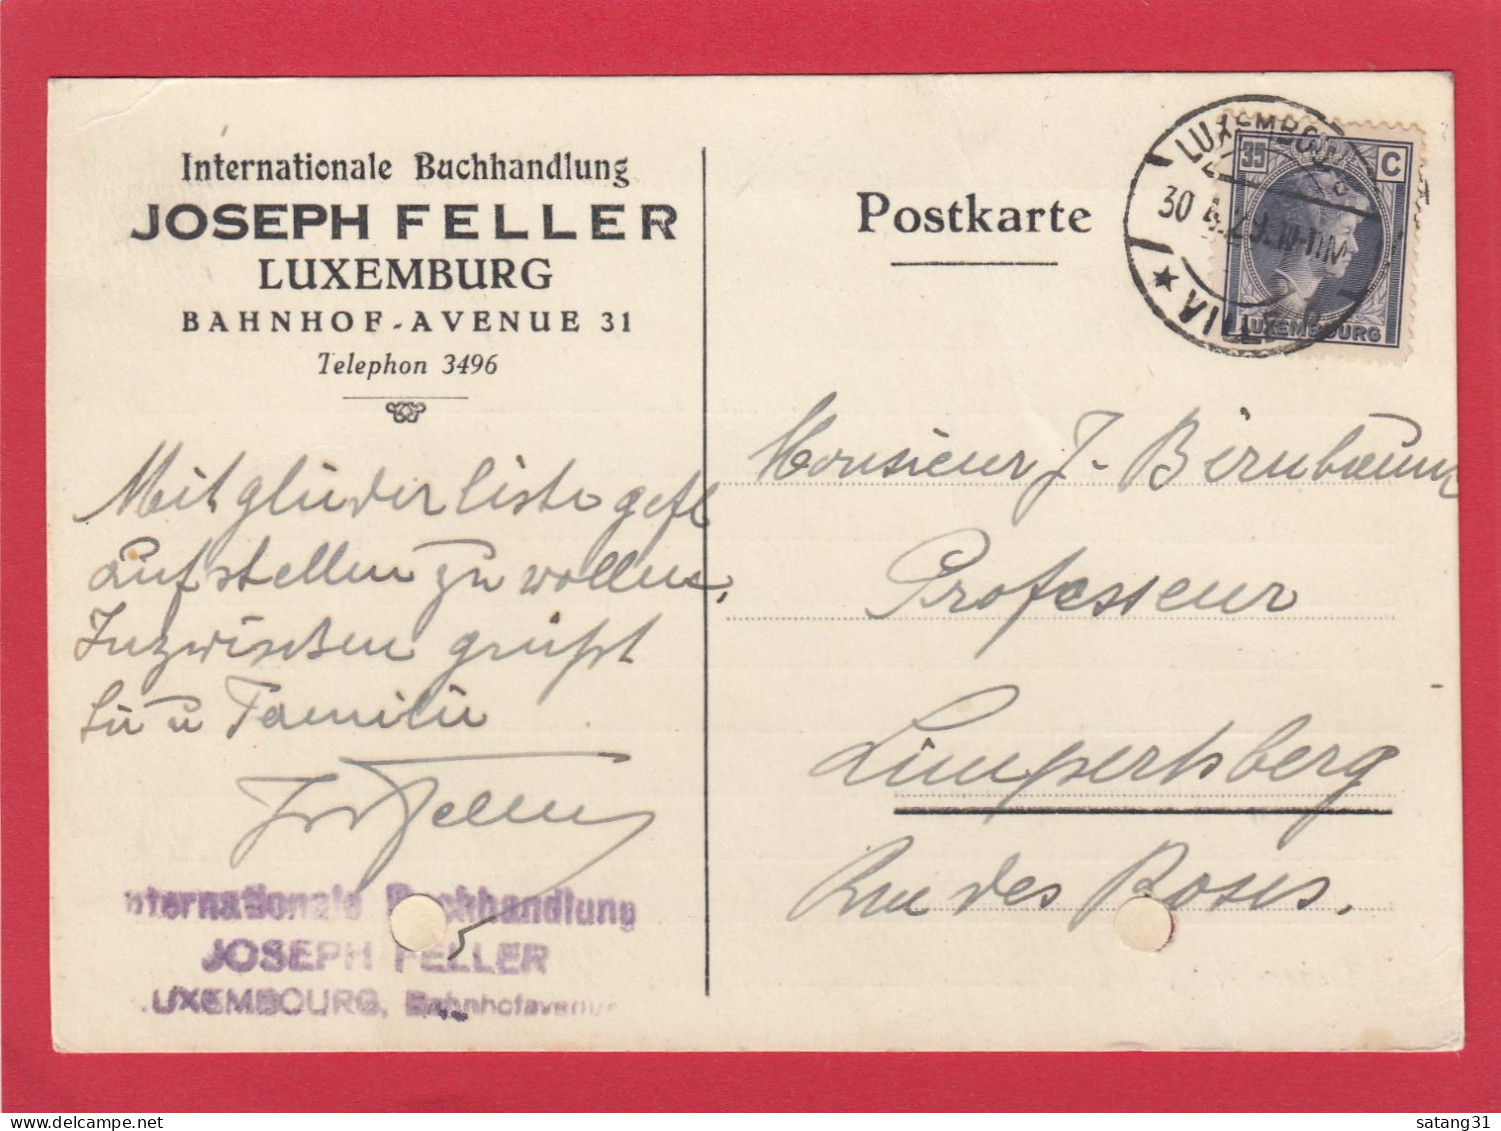 Internationale Buchhandlung
JOSEPH FELLER
LUXEMBURG
BAHNHOF-AVENUE 31
Telephon 3496
Mitgliederliste gefl
aufstellen zu wollen.
Inzwischen grüsst
Sie u Familie
Jos Feller
Internationale Buchhandlung
JOSEPH FELLER
LUXEMBOURG, Bahnhofavenue
Postkarte
LUXEMBOURG
VILLE
30.4.29. 10-11M
35 C
LUXEMBOURG
Monsieur J. Birnbaum
Professeur
Limpertsberg
Rue des Roses.
satang31